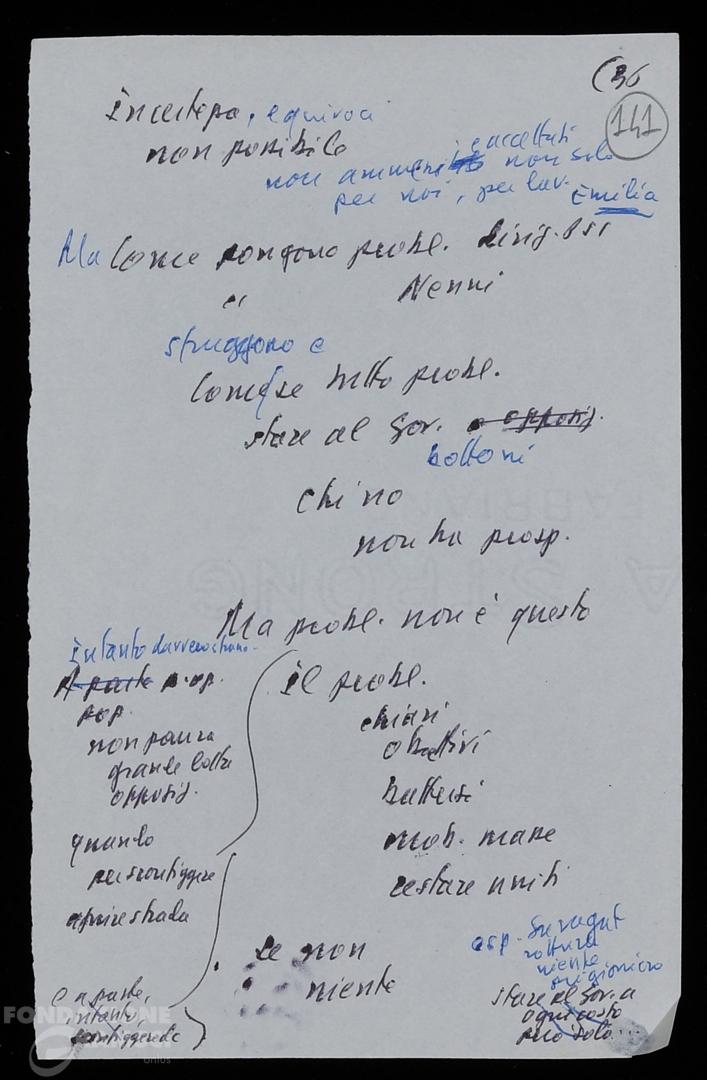 (36
141
Incertezza, equivoci
non possibile
e accettati
non ammessi non solo
per noi, per lav. Emilia
Ma Come pongono probl. dirig. PSI
Nenni
struggono e
Come se tutto probl.
stare al Gov. o opposiz.
bottoni
chi no
non ha prosp.
Ma probl. non è questo
Intanto davvero strano
A parte p. op.
pop.
non paura
grande lotta
opposiz.
quanto
per sconfiggere
aprire strada
e a parte,
intanto,
sconfiggere dc
il probl.
chiari
obiettivi
battersi
mob. masse
restare uniti
se non
niente
esp. Saragat
rottura
niente
prigioniero
stare al Gov. a
ogni costo
può solo...
FONDAZIONE
onlus